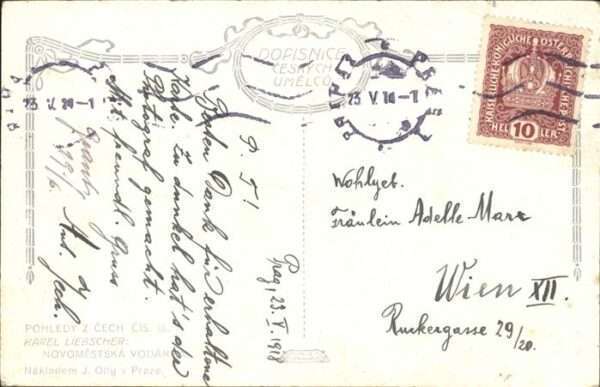 DOPISNICE
ČESKÝCH
UMĚLCŮ
23 V. 18-1
23 V. 18-1
KAISERLICHE KÖNIGLICHE ÖSTERREICHISCHE POST
HELLER
10
P. T!
Besten Dank für erhaltene
Karte. Zu dunkel hat's der
Photograf gemacht.
Mit freundl. Gruss
Ant. Zech.
Prag, 23. V. 1918
Wohlgeb.
Fräulein Adelle Marx
Wien XII.
Ruckergasse 29/20.
POHLEDY Z ČECH ČÍS.
KAREL LIEBSCHER:
NOVOMĚSTSKÁ VODÁR
Nákladem J. Otty v Praze.